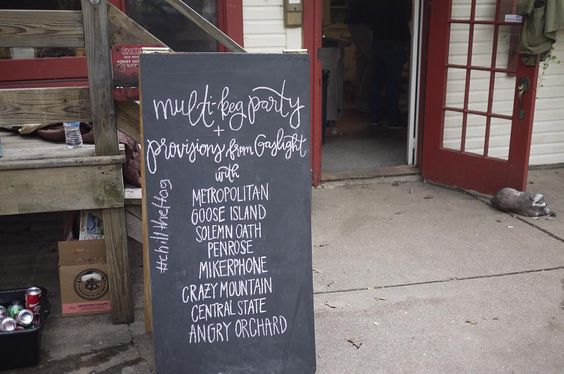 multi-keg party
+
provisions from Gaslight
with
METROPOLITAN
GOOSE ISLAND
SOLEMN OATH
PENROSE
MIKERPHONE
CRAZY MOUNTAIN
CENTRAL STATE
ANGRY ORCHARD
#chilltheHog